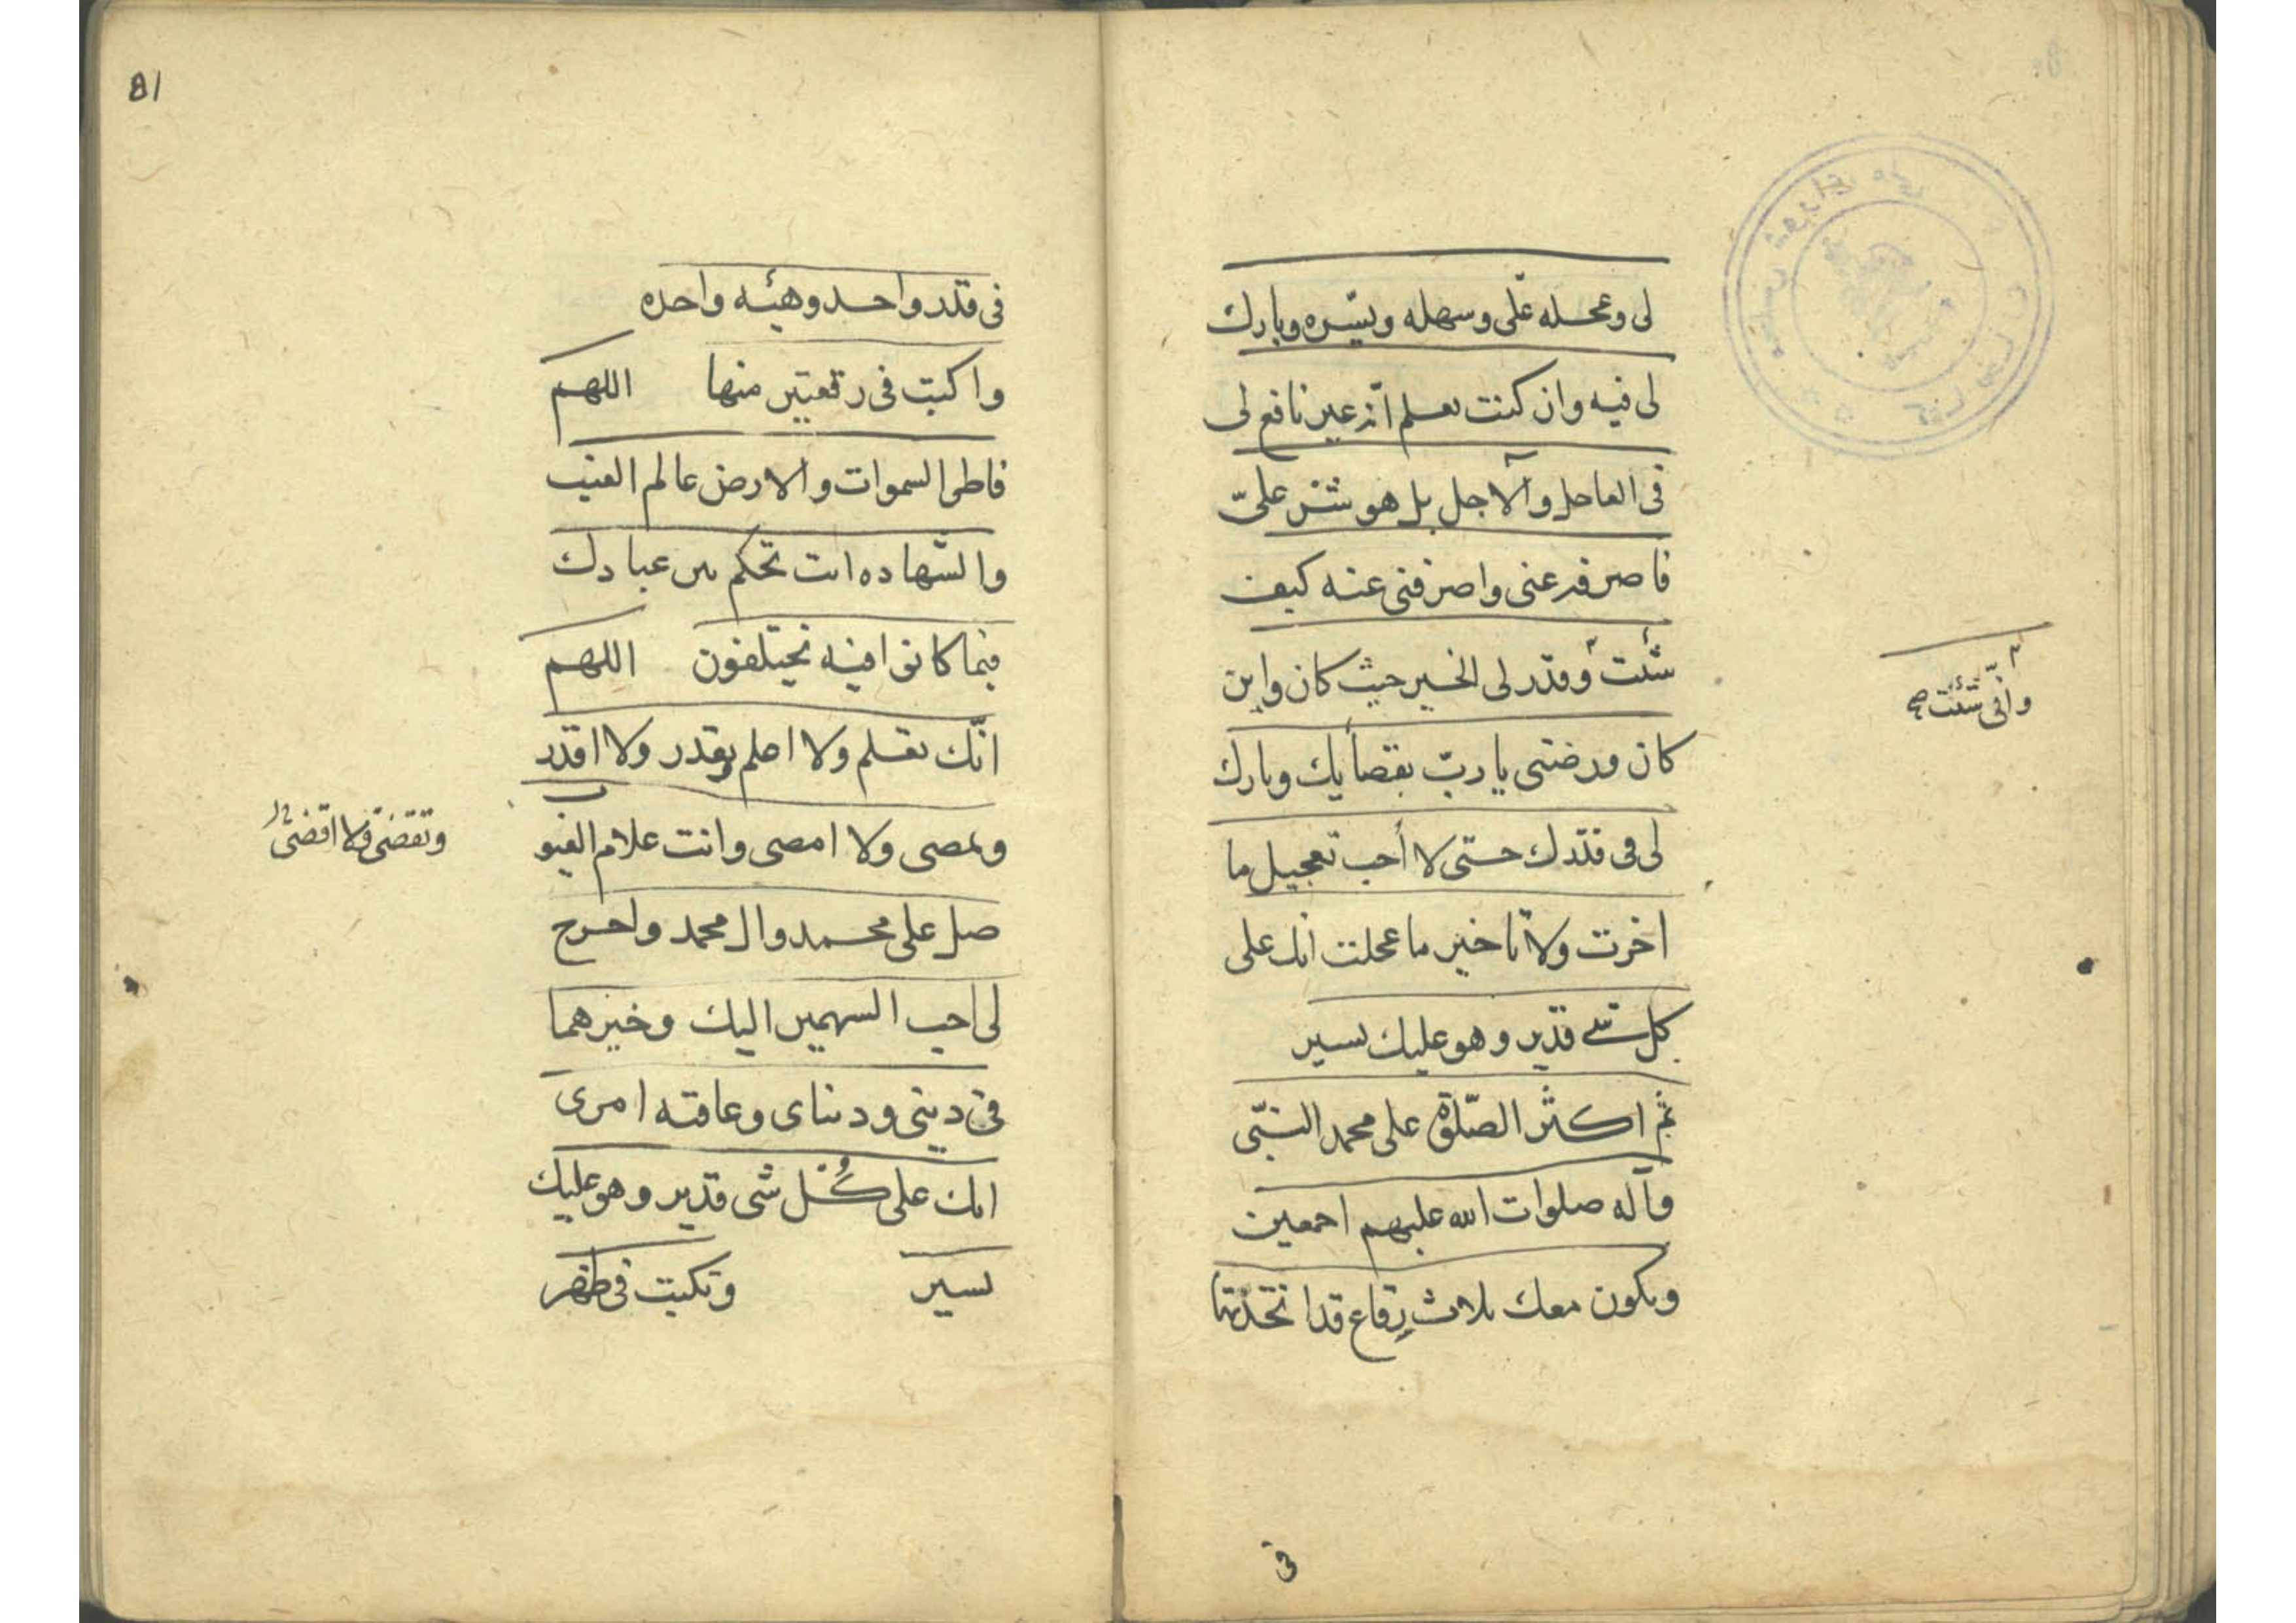 لى وعجله علّى وسهله ويسّره وبارك
لى فيه وان كنت تعلم انّه غير نافع لى
فى العاجل والآجل بل هو شرّ علىّ
فاصرفه عنى واصرفنى عنه كيف
شئت وقدّر لى الخير حيث كان واين
وانّى شئت صح
كان ورضنى يا ربّ بقضايك وبارك
لى فى قدرك حتّى لا أحب تعجيل ما
اخرت ولا تاخير ما عجلت انك على
كل شئ قدير وهو عليك يسير
ثم اكثر الصّلوة على محمد النبّى
وآله صلوات الله عليهم اجمعين
ويكون معك ثلاث رقاع قد اتخذتها
فى
81
فى قدر واحد وهيئه واحده
واكتب فى رقعتين منها اللهم
فاطر السموات والارض عالم الغيب
والشّهاده انت تحكم بين عبادك
فيما كانوا فيه يختلفون اللهم
انّك تعلم ولا اعلم وتقدر ولا اقدر
وتمضى ولا امضى وانت علام الغيو
ب
وتقضى ولا اقضى
صل على محمد وال محمد واخرج
لى احب السهمين اليك وخيرهما
فى دينى ودنياى وعاقبه امرى
انك على كُل شى قدير وهو عليك
يسير وتكتب فى ظهر